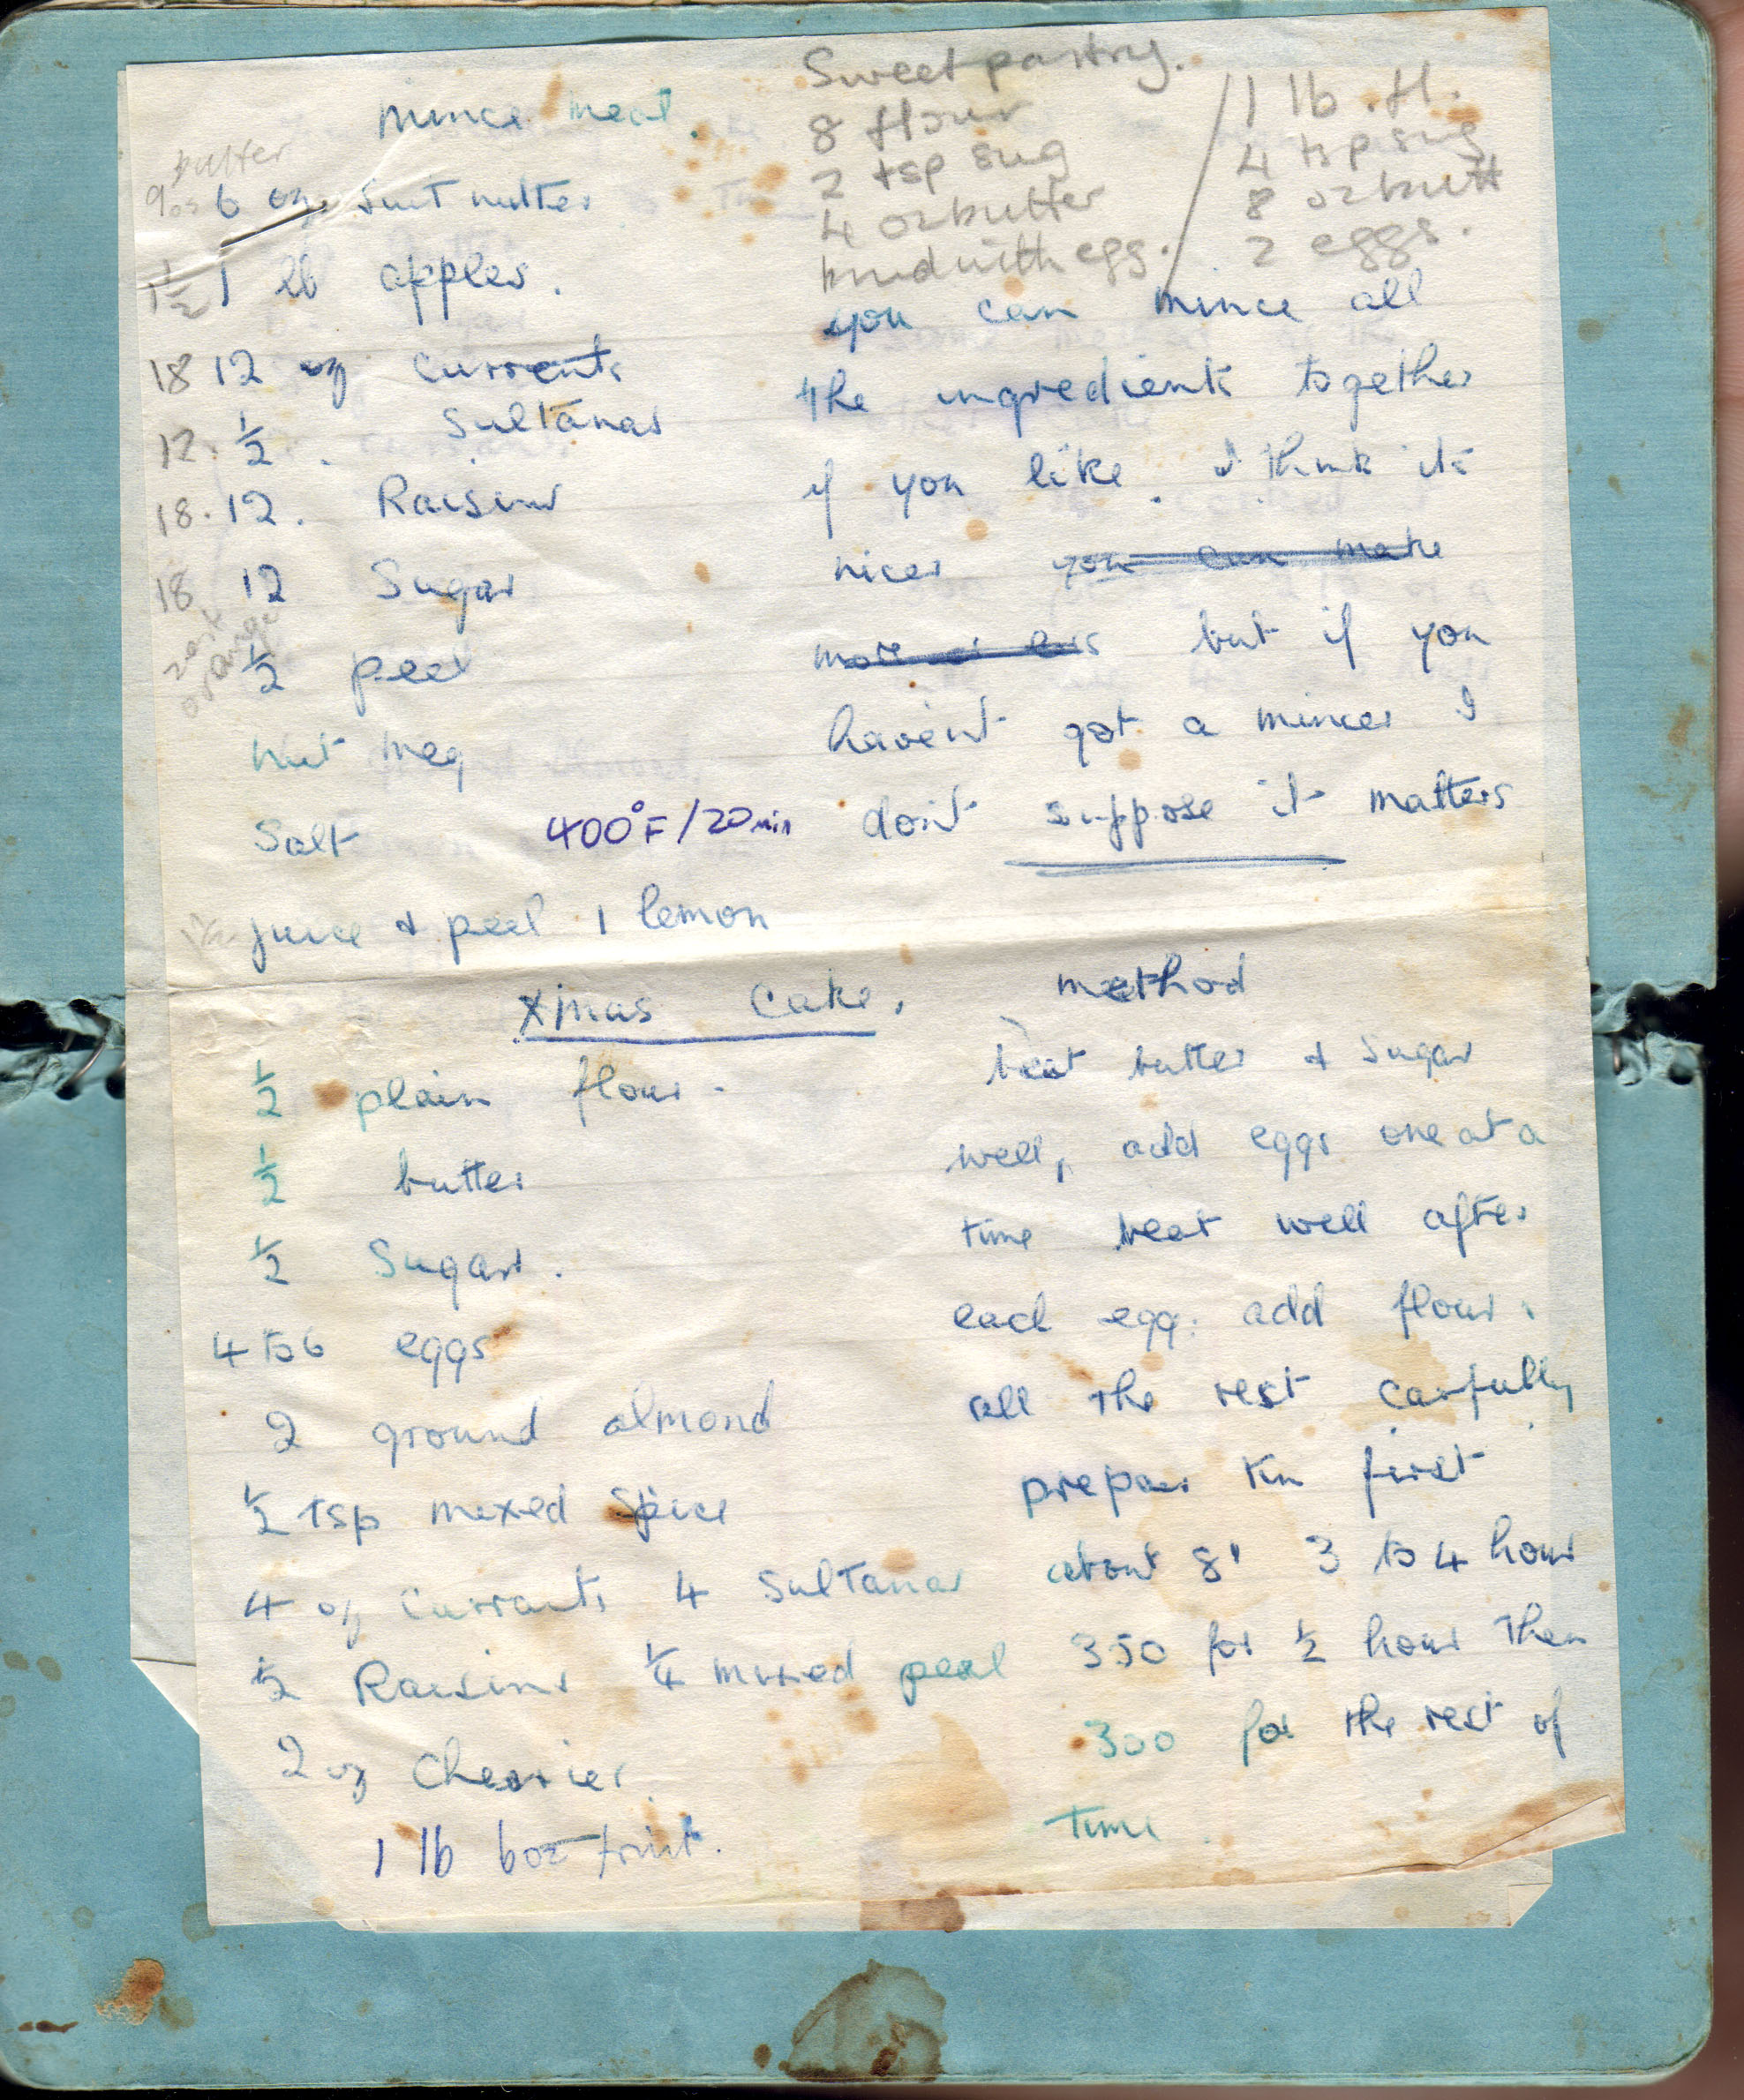 Sweet pastry.
8 flour
2 tsp sug
4 oz butter
bind with egg.
1 lb. fl.
4 tsp sug
8 oz butt
2 eggs.
Mince meat.
butter
9 oz 6 oz. Suit butter
1½ 1 lb apples.
18 12 oz currents
12. ½. Sultanas
18. 12. Raisins
18 12 Sugar
zest orange
½ peel
Nut meg
Salt
400°F/20min
juice & peel 1 lemon
you can mince all
the ingredients together
if you like. I think its
nicer you can make
more or less but if you
haven't got a mincer I
don't suppose it matters
Xmas Cake.
½ plain flour.
½ butter
½ Sugar.
4 to 6 eggs
2 ground almond
½ tsp mixed Spice
4 oz Currants 4 Sultanas
½ Raisins ¼ mixed peal
2 oz Cherries.
1 lb 6oz fruit.
method
beat butter & sugar
well, add eggs one at a
time beat well after
each egg. add flour.
all the rest carfully
prepar tin first
about 8" 3 to 4 hour
350 for ½ hour then
300 for the rest of
time.